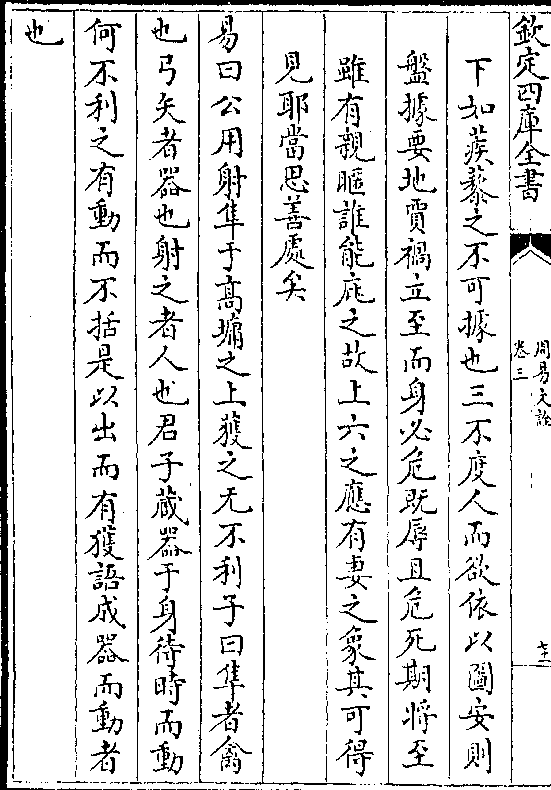 欽定四庫全書
周易文詮
卷三
下如蒺藜之不可據也三不度人而欲依以圖安則
盤據要地賈禍立至而身必危既辱且危死期將至
雖有親暱誰能庇之故上六之應有妻之象其可得
見耶當思善處矣
易曰公用射隼于高墉之上獲之无不利子曰隼者禽
也弓矢者器也射之者人也君子藏器于身待時而動
何不利之有動而不括是以出而有獲語成器而動者
也